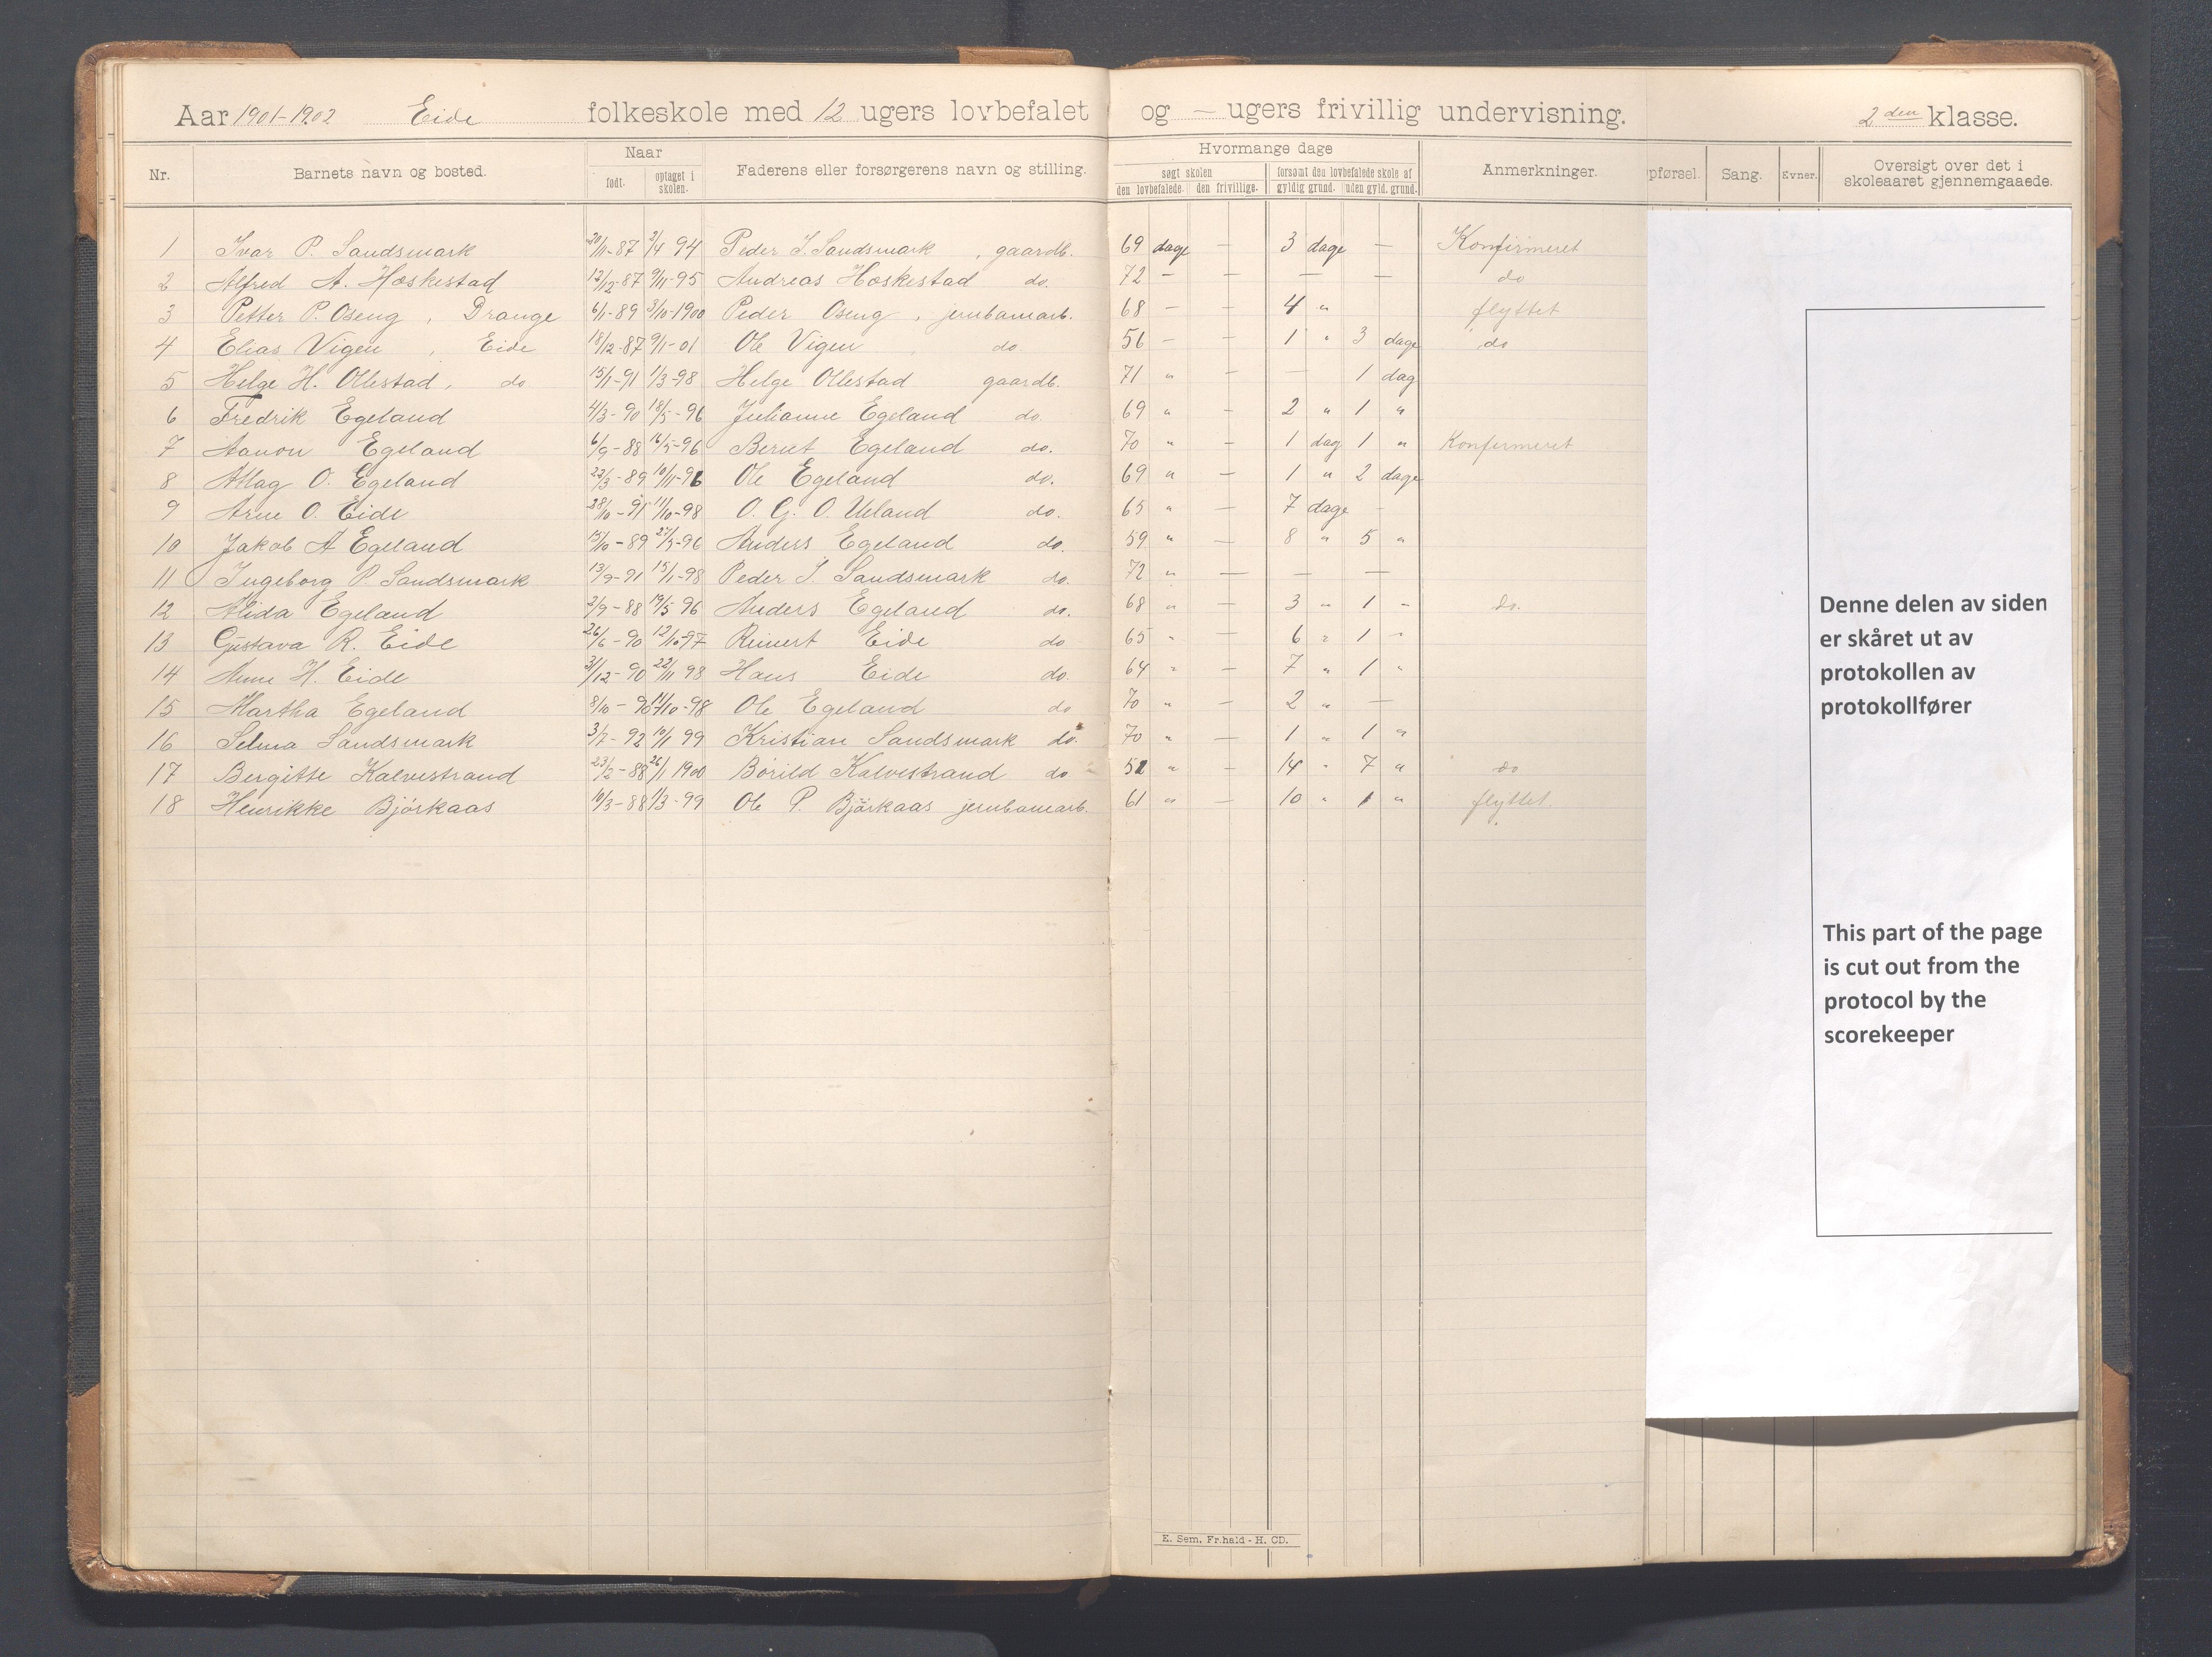 Aar 1901-1902 Eide folkeskole med 12 ugers lovbefalet og – ugers frivillig undervisning. 2den klasse.
Nr. Barnets navn og bosted. Naar født. optaget i skolen. Faderens eller forsørgerens navn og stilling. Hvormange dage søgt skolen den lovbefalede. den frivillige. forsømt den lovbefalede skole af gyldig grund. uden gyld. grund. Anmerkninger. pførsel. Sang. Evner. Oversigt over det i skoleaaret gjennemgaaede.
1 Ivar P. Sandsmark 20/11-87 2/4 94 Peder I. Sandsmark, gaardb. 69 dage – 3 dage – Konfirmeret
2 Alfred A. Hæskestad 12/12-87 9/11-95 Andreas Hæskestad do. 72 – – – – do
3 Petter P. Øseng, Drange 6/1-89 3/10-1900 Peder Øseng, jernbanearb. 68 – – 4 " flyttet
4 Elias Vigen, Eide 18/12-87 9/1-01 Ole Vigen do. 56 – – 1 " 3 dage do
5 Helge H. Ollestad, do 15/1-91 1/3-98 Helge Ollestad gaardb. 71 " – – 1 dag
6 Fredrik Egeland 4/3-90 18/5-96 Julianne Egeland do. 69 " – 2 " 1 "
7 Aanon Egeland 6/9-88 16/5-96 Berut Egeland do. 70 " – 1 dag 1 " Konfirmeret
8 Atlag O. Egeland 22/3-89 10/11-96 Ole Egeland do. 69 " – 1 " 2 dage
9 Arne O. Eide 28/10-91 11/10-98 O. G. O. Ueland do. 65 " – 7 dage –
10 Jakob A Egeland 15/10-89 27/5-96 Anders Egeland do. 59 " – 8 " 5 "
11 Ingeborg P. Sandsmark 13/9-91 15/1-98 Peder I. Sandsmark do. 72 " – – –
12 Alida Egeland 2/9-88 19/5 96 Anders Egeland do. 68 " – 3 " 1 – do.
13 Gustava R. Eide 26/6-90 12/10-97 Reinert Eide do 65 " – 6 " 1 "
14 Anne H. Eide 31/12-90 22/11 98 Hans Eide do. 64 " – 7 " 1 "
15 Martha Egeland 8/10-90 11/10-98 Ole Egeland do 70 " – 2 " –
16 Selma Sandsmark 3/7-92 10/1 99 Kristian Sandsmark do. 70 " – 1 " 1 "
17 Bergitte Kalvestrand 23/2-88 26/1 1900 Børild Kalvestrand do 51 " – 14 " 7 " do
18 Henrikke Bjørkaas 10/3-88 1/3-99 Ole P. Bjørkaas jernbanearb. 61 " – 10 " 1 " flyttet.
E. Sem, Fr.hald - H. CD.
Denne delen av siden
er skåret ut av
protokollen av
protokollfører
This part of the page
is cut out from the
protocol by the
scorekeeper